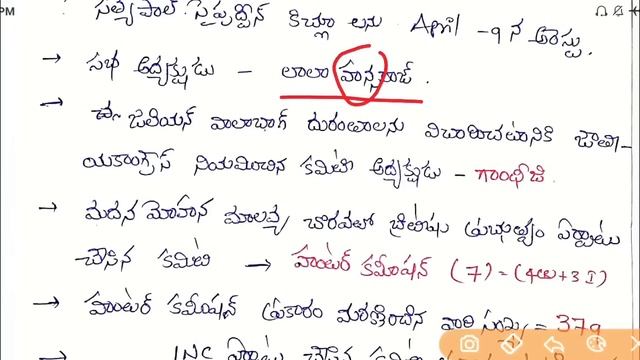 PM
సత్యపాల్. సైఫుద్దీన్ కిచ్లూ లను April -9న అరెస్టు.
→ సభ అధ్యక్షుడు - లాలా హన్సరాజ్.
→ జలియన్ వాలాబాగ్ దురంతాలను విచారించటానికి జాతీ-
యకాంగ్రెస్ నియమించిన కమిటీ అధ్యక్షుడు - గాంధీజీ
→ మదన మోహన మాలవ్య చొరవతో బ్రిటీషు ప్రభుత్వం ఏర్పాటు
చేసిన కమిటీ → హంటర్ కమీషన్ (7) = (4ఆం+3 I)
→ హంటర్ కమీషన్ ప్రకారం మరణించిన వారి సంఖ్య = 379
INC ఏర్పాటు చేసిన కమిటీ